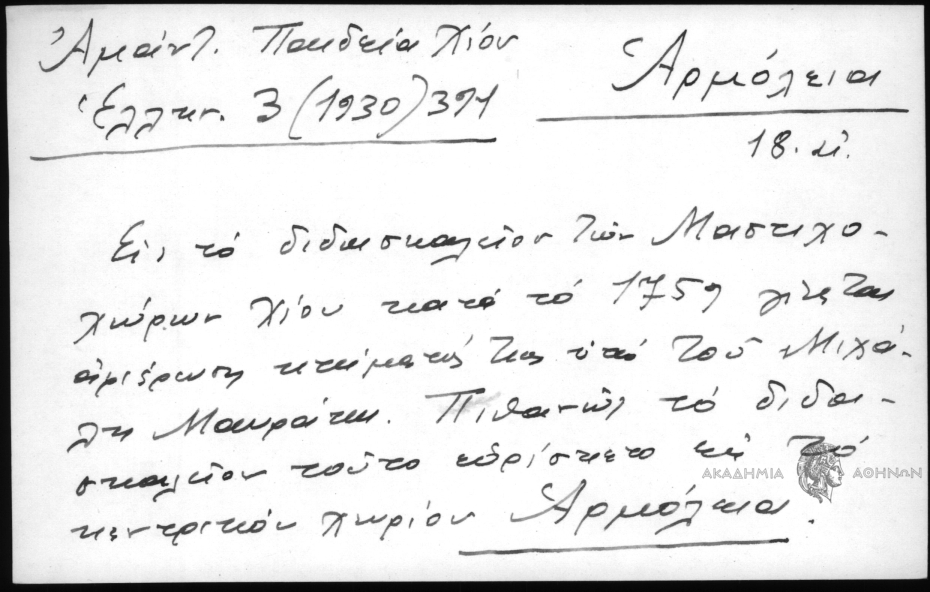 Ἀμάντ. Παιδεία Χίου
Ἑλλην. 3 (1930) 391
Ἁρμόλεια
18. αἰ.
Εἰς τό διδασκαλεῖον τῶν Μαστιχο-
χώρων Χίου κατά τό 1759 γίνεται
ἀφιέρωση κτήματός της ὑπό τοῦ Μιχά-
λη Μαυράκη. Πιθανῶς τό διδα-
σκαλεῖον τοῦτο εὑρίσκετο εἰς τό
κεντρικόν χωρίον Ἁρμόλεια.
ΑΚΑΔΗΜΙΑ ΑΘΗΝΩΝ